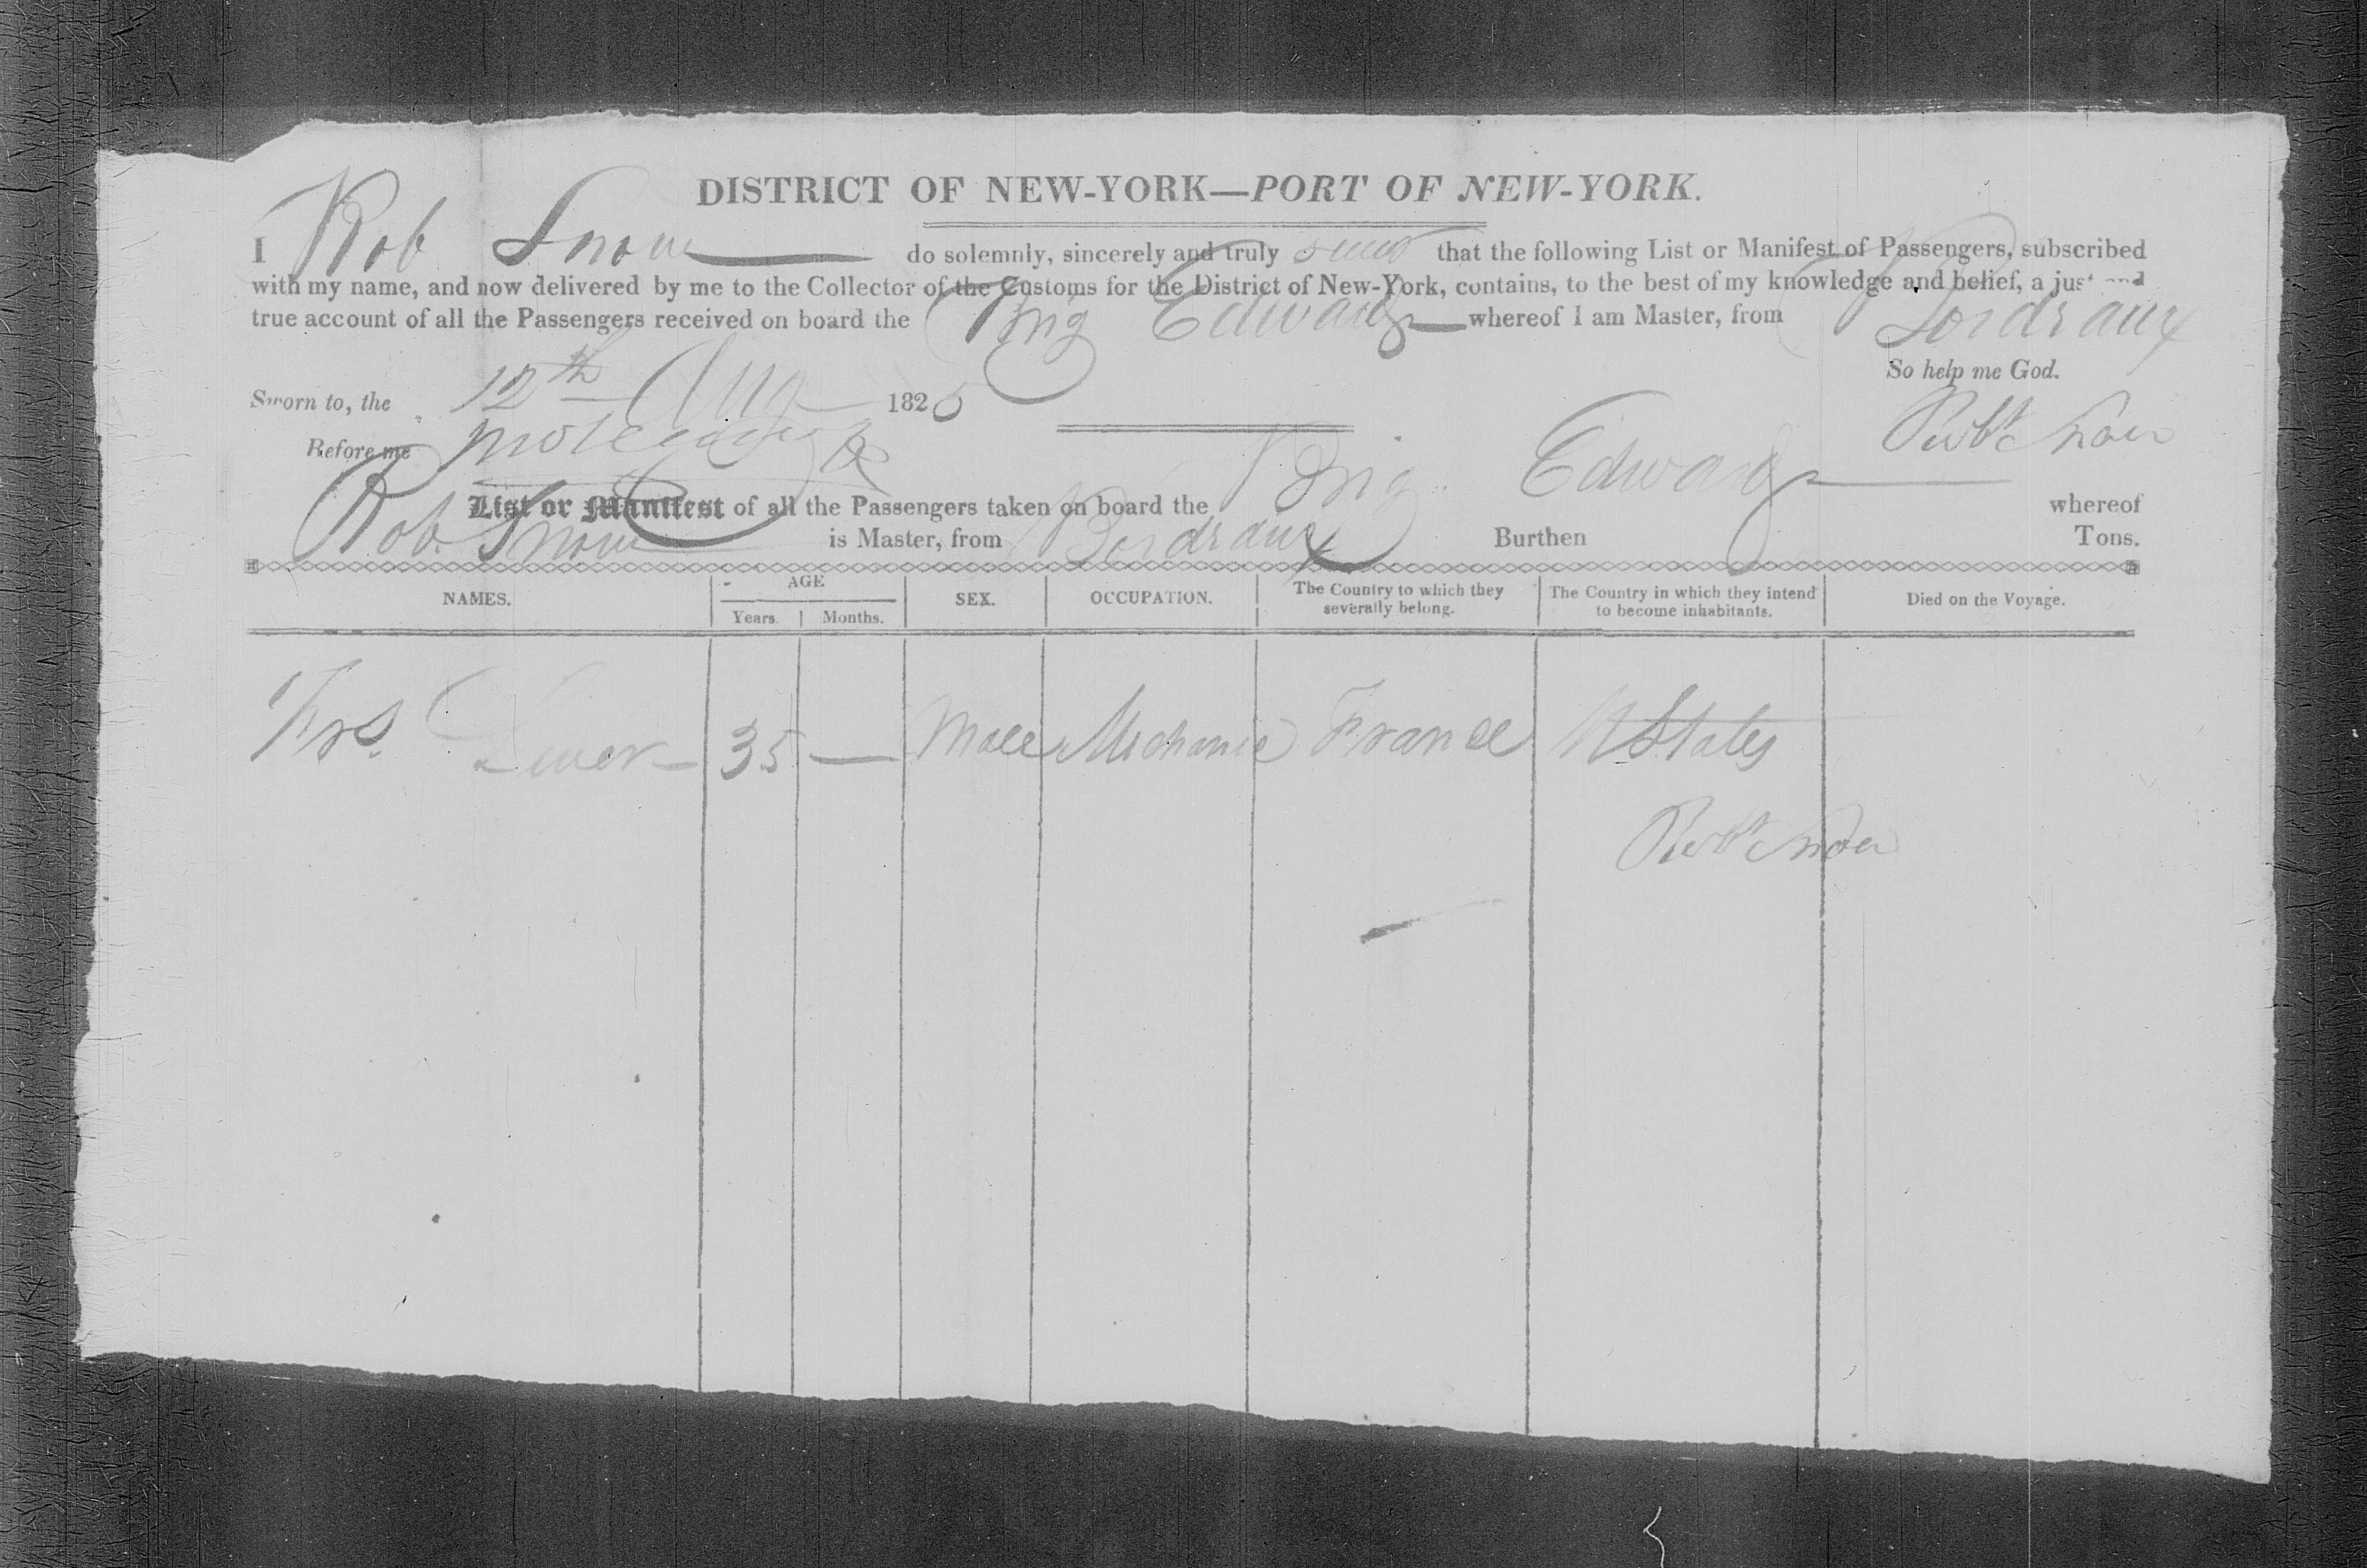 DISTRICT OF NEW-YORK—PORT OF NEW-YORK.
I Rob Snow do solemnly, sincerely and truly swear that the following List or Manifest of Passengers, subscribed
with my name, and now delivered by me to the Collector of the Customs for the District of New-York, contains, to the best of my knowledge and belief, a just and
true account of all the Passengers received on board the Brig Edward whereof I am Master, from Bordraux
So help me God.
Sworn to, the 12th Aug 1825
Robt Snow
Before me
List or Manifest of all the Passengers taken on board the Brig Edward whereof
Rob. Snow is Master, from Bordraux Burthen Tons.
NAMES. AGE SEX. OCCUPATION. The Country to which they severally belong. The Country in which they intend to become inhabitants. Died on the Voyage.
Years. Months.
Frs. 35 — Male Mechanic France U States
Robt Snow